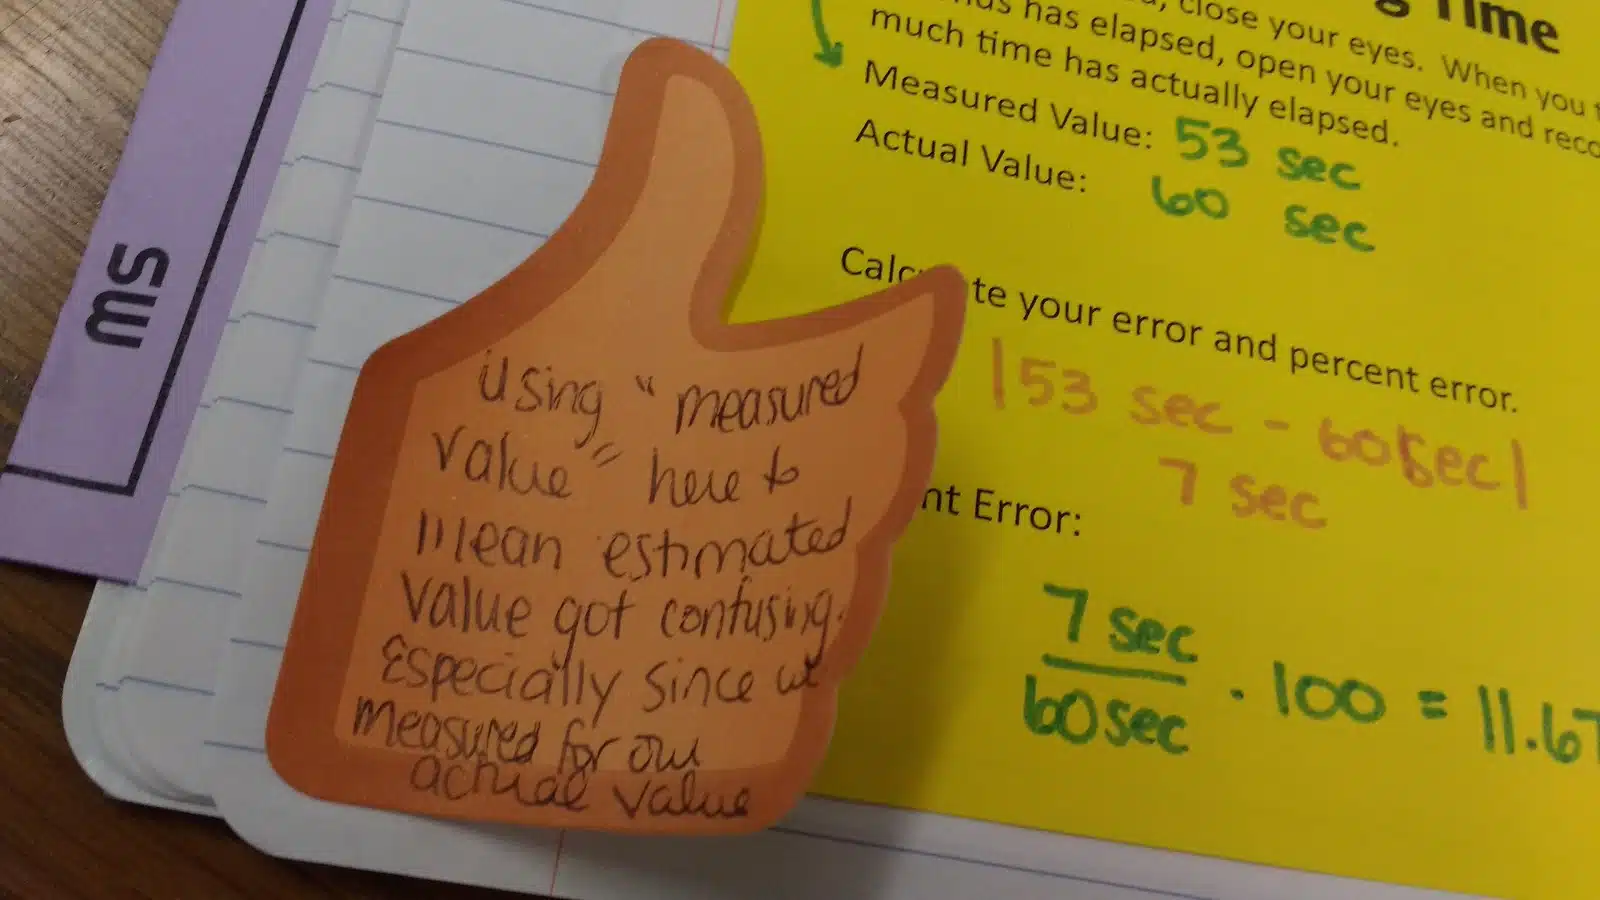 g Time
, close your eyes. When you
has elapsed, open your eyes and reco
much time has actually elapsed.
Measured Value: 53 sec
Actual Value: 60 sec
Calc te your error and percent error.
|53 sec - 60 sec|
7 sec
nt Error:
7 sec
60 sec
. 100 = 11.67
SW
Using "measured
value" here to
mean estimated
value got confusing.
Especially since we
measured for our
actual value